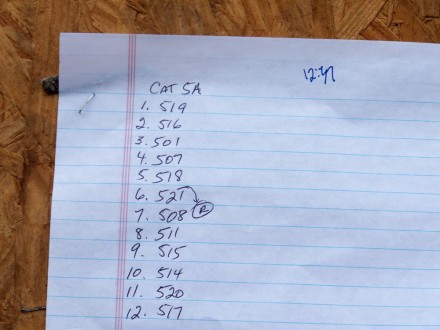 12:47
CAT 5A
1. 519
2. 516
3. 501
4. 507
5. 518
6. 521
7. 508 R
8. 511
9. 515
10. 514
11. 520
12. 517